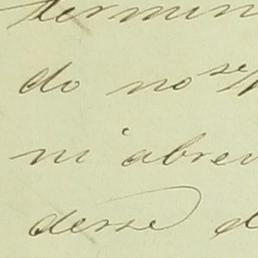 termin
do no se
ni abrev
desse d